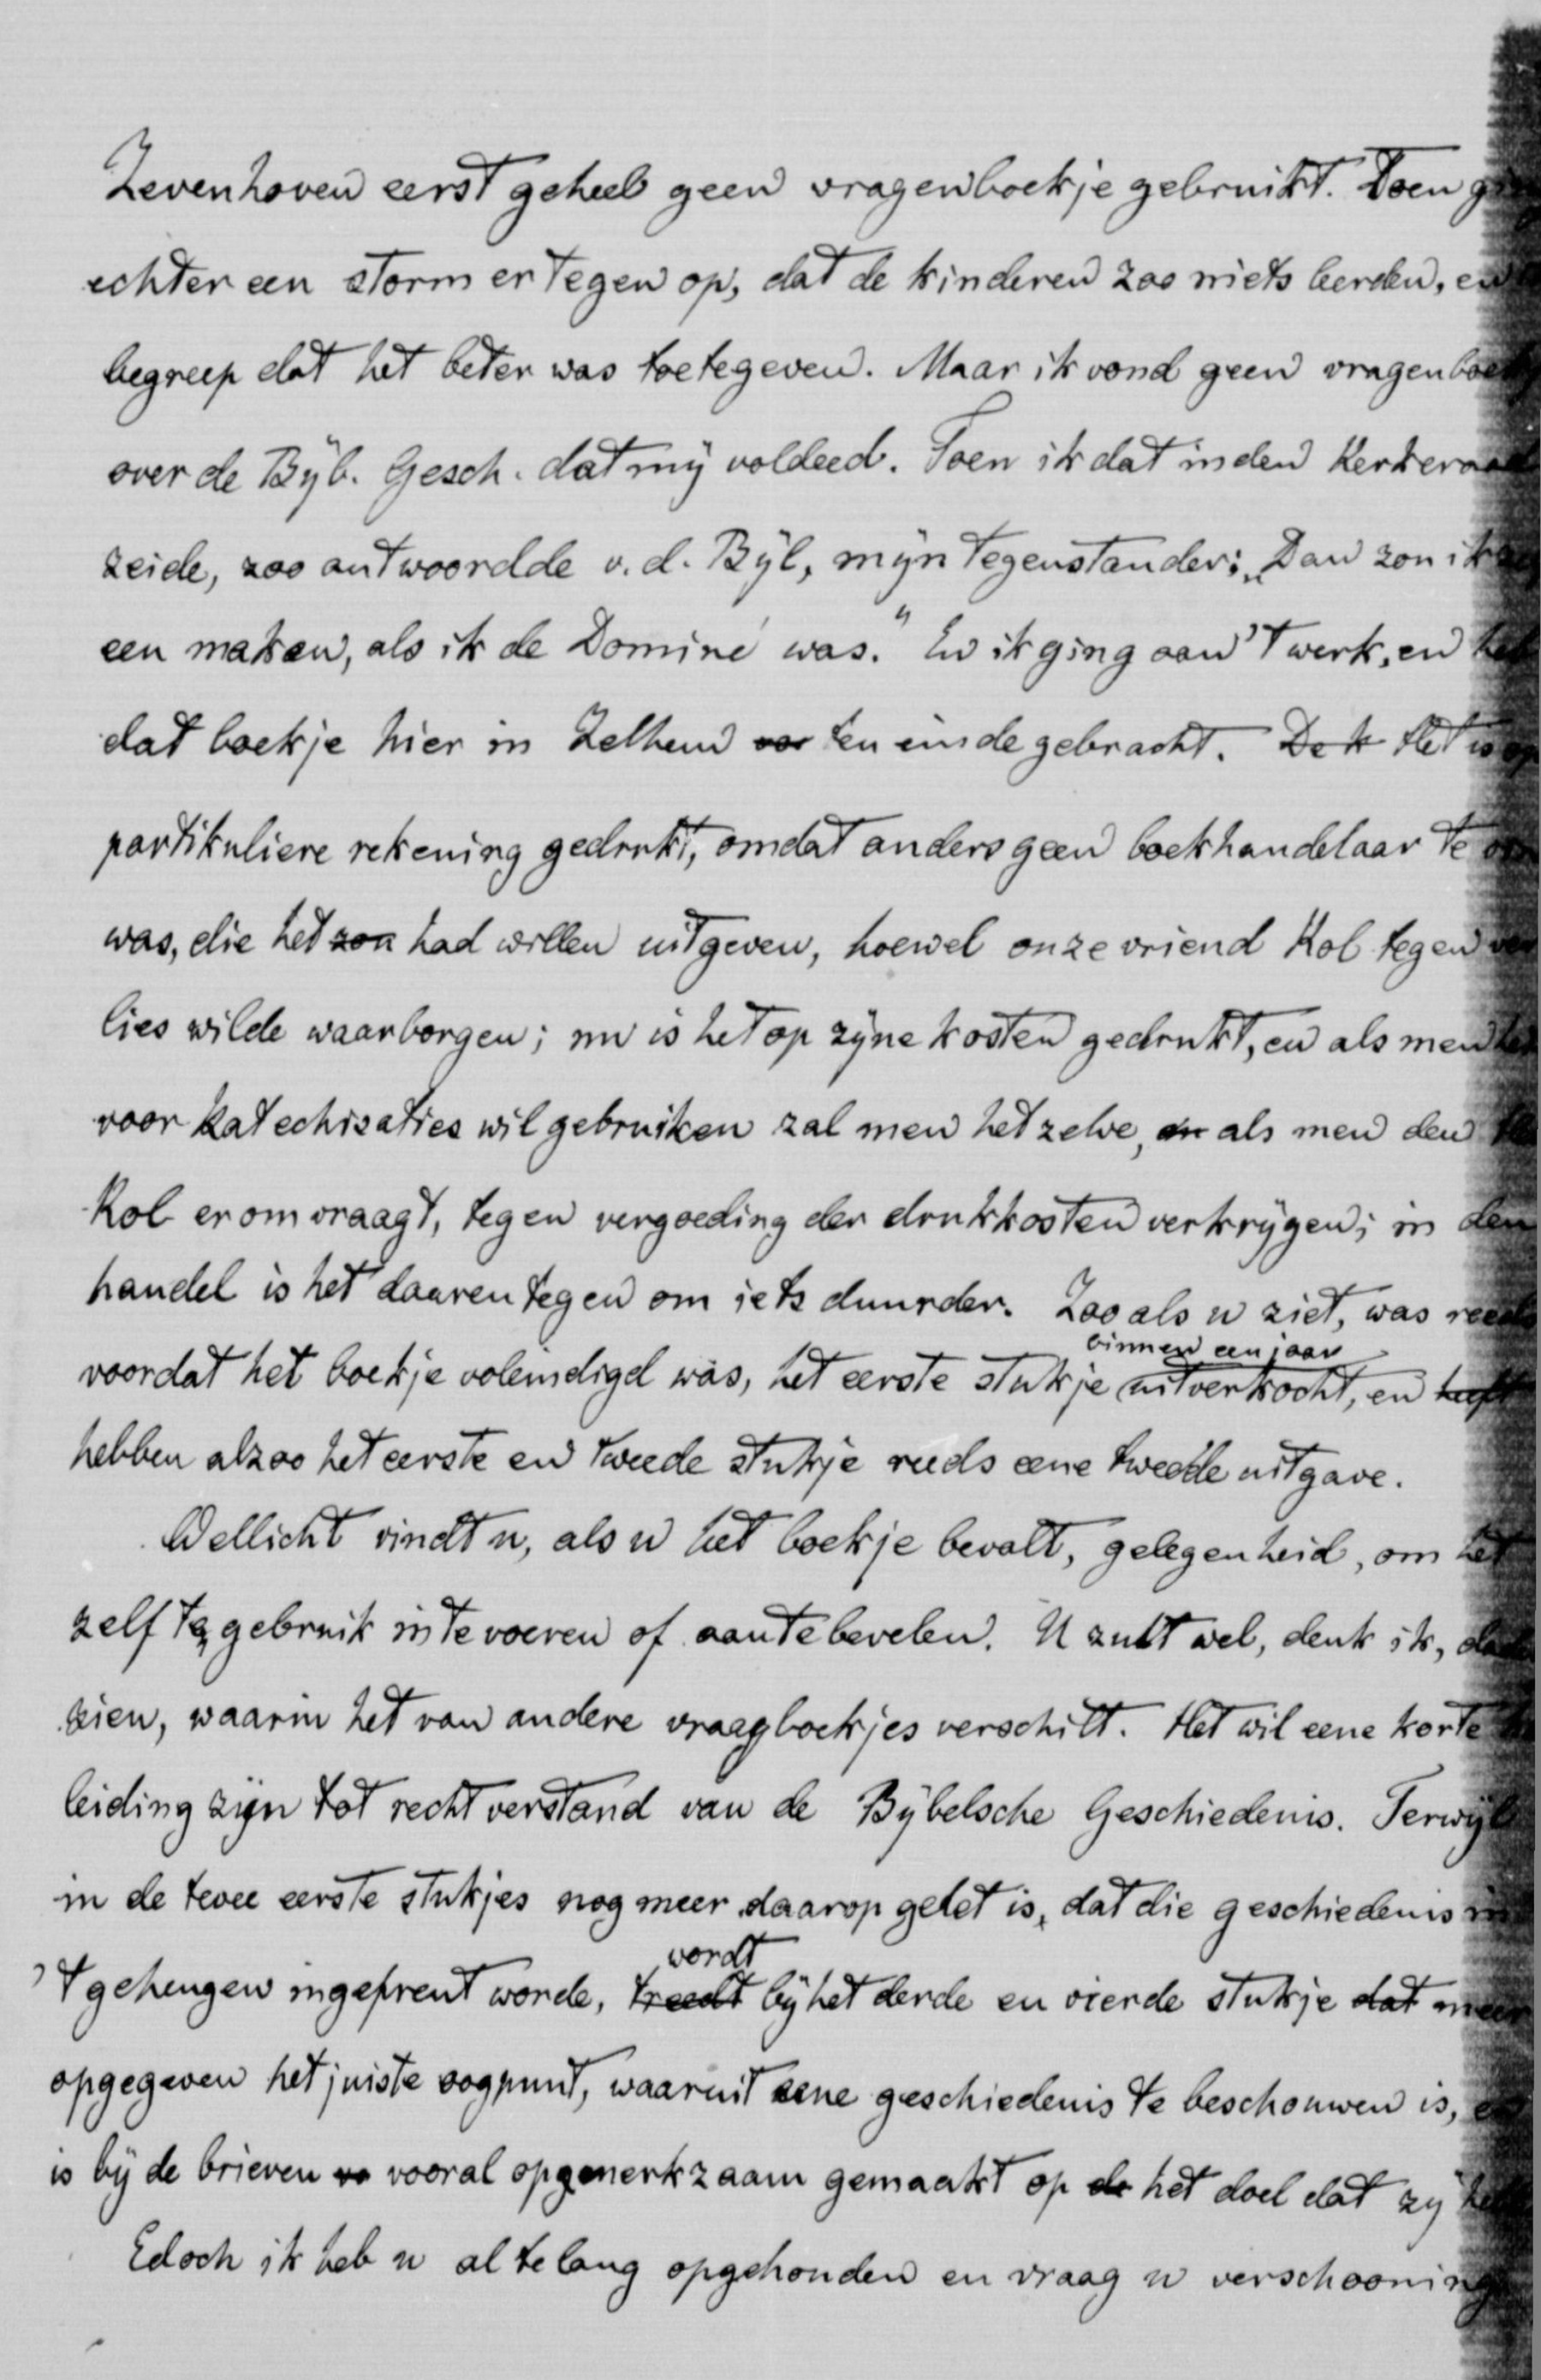 Zevenhoven eerst geheel geen vragenboekje gebruikt. Toen ging
echter een storm er tegen op, dat de kinderen zoo niets leerden, en
begreep dat het beter was toetegeven. Maar ik vond geen vragenboekje
over de Bÿb. Gesch. dat mÿ voldeed. Toen ik dat in den Kerkeraad
zeide, zoo antwoordde v. d. Bÿl, mÿn tegenstander: „Dan zou ik
een maken, als ik de Dominé was." En ik ging aan 't werk, en heb
dat boekje hier in Zelhem voo ten einde gebracht. De k Het is op
partikuliere rekening gedrukt, omdat anders geen boekhandelaar te
was, die het zou had willen uitgeven, hoewel onze vriend Kol tegen ver
lies wilde waarborgen; nu is het op zÿne kosten gedrukt, en als men het
voor katechisaties wil gebruiken zal men hetzelve, en als men den
Kol erom vraagt, tegen vergoeding der drukkosten verkrÿgen; in den
handel is het daarentegen om iets duurder. Zooals u ziet, was reeds
binnen een jaar
voordat het boekje voleindigd was, het eerste stukje uitverkocht, en heeft
hebben alzoo het eerste en tweede stukje reeds eene tweede uitgave.
Wellicht vindt u, als u het boekje bevalt, gelegenheid, om het
zelf te gebruik in te voeren of aan te bevelen. U zult wel, denk ik,
zien, waarin het van andere vraagboekjes verschilt. Het wil eene korte
leiding zijn tot recht verstand van de Bÿbelsche Geschiedenis. Terwÿl
in de twee eerste stukjes nog meer daarop gelet is, dat die geschiedenis in
wordt
't geheugen ingeprent worde, treedt bÿ het derde en vierde stukje dat meer
opgegeven het juiste oogpunt, waaruit eene geschiedenis te beschouwen is, en
is bÿ de brieven vo vooral opgemerkzaam gemaakt op de het doel dat zÿ
Edoch ik heb u al te lang opgehouden en vraag u verschooning